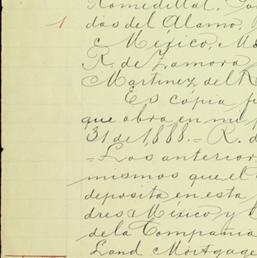 Romedillal. Po
1 das del Alamo.
Mejico, Mo
R. de Zamora
Martinez del R
Es cópia f
que obra en mi p
31 de 1,888. = R. d
= Los anterior
mismos que el
deposita en esta
dres México y
de la Compañia
Land Mortgage